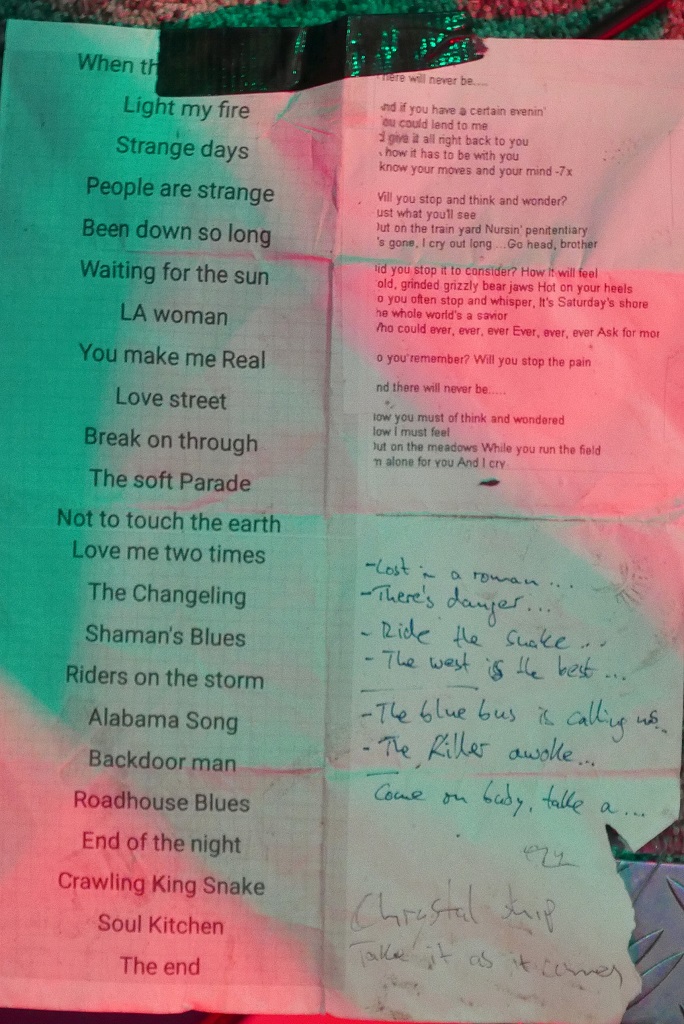 When th
Light my fire
Strange days
People are strange
Been down so long
Waiting for the sun
LA woman
You make me Real
Love street
Break on through
The soft Parade
Not to touch the earth
Love me two times
The Changeling
Shaman's Blues
Riders on the storm
Alabama Song
Backdoor man
Roadhouse Blues
End of the night
Crawling King Snake
Soul Kitchen
The end
here will never be.....
nd if you have a certain evenin'
ou could lend to me
give it all right back to you
how it has to be with you
know your moves and your mind -7x
Will you stop and think and wonder?
ust what you'll see
ut on the train yard Nursin' penitentiary
's gone, I cry out long ...Go head, brother
id you stop it to consider? How it will feel
old, grinded grizzly bear jaws Hot on your heels
o you often stop and whisper, It's Saturday's shore
he whole world's a savior
Who could ever, ever, ever Ever, ever, ever Ask for mor
o you remember? Will you stop the pain
nd there will never be.....
low you must of think and wondered
low I must feel
ut on the meadows While you run the field
m alone for you And I cry
-Lost in a roman...
-There's danger...
- Ride the snake...
- The west is the best...
-The blue bus is calling us..
- The Killer awoke...
Come on baby, take a...
Chrystal ship
Take it as it comes